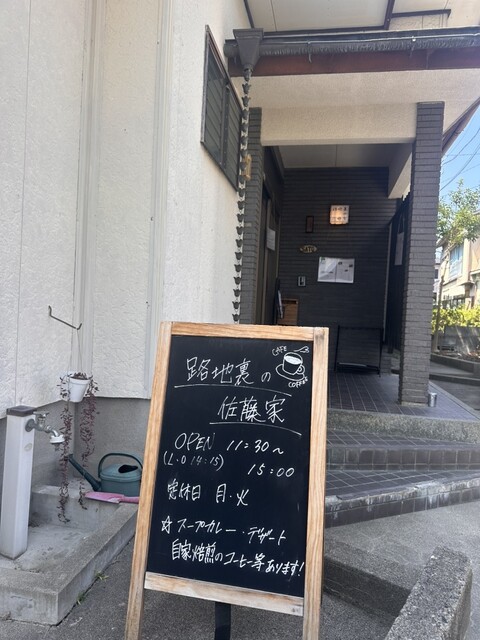 CAFE
COFFEE
路地裏の
佐藤家
OPEN 11:30~
(L・O 14:15) 15:00
定休日 月・火
☆ スープカレー・デザート
自家焙煎のコーヒー等あります!